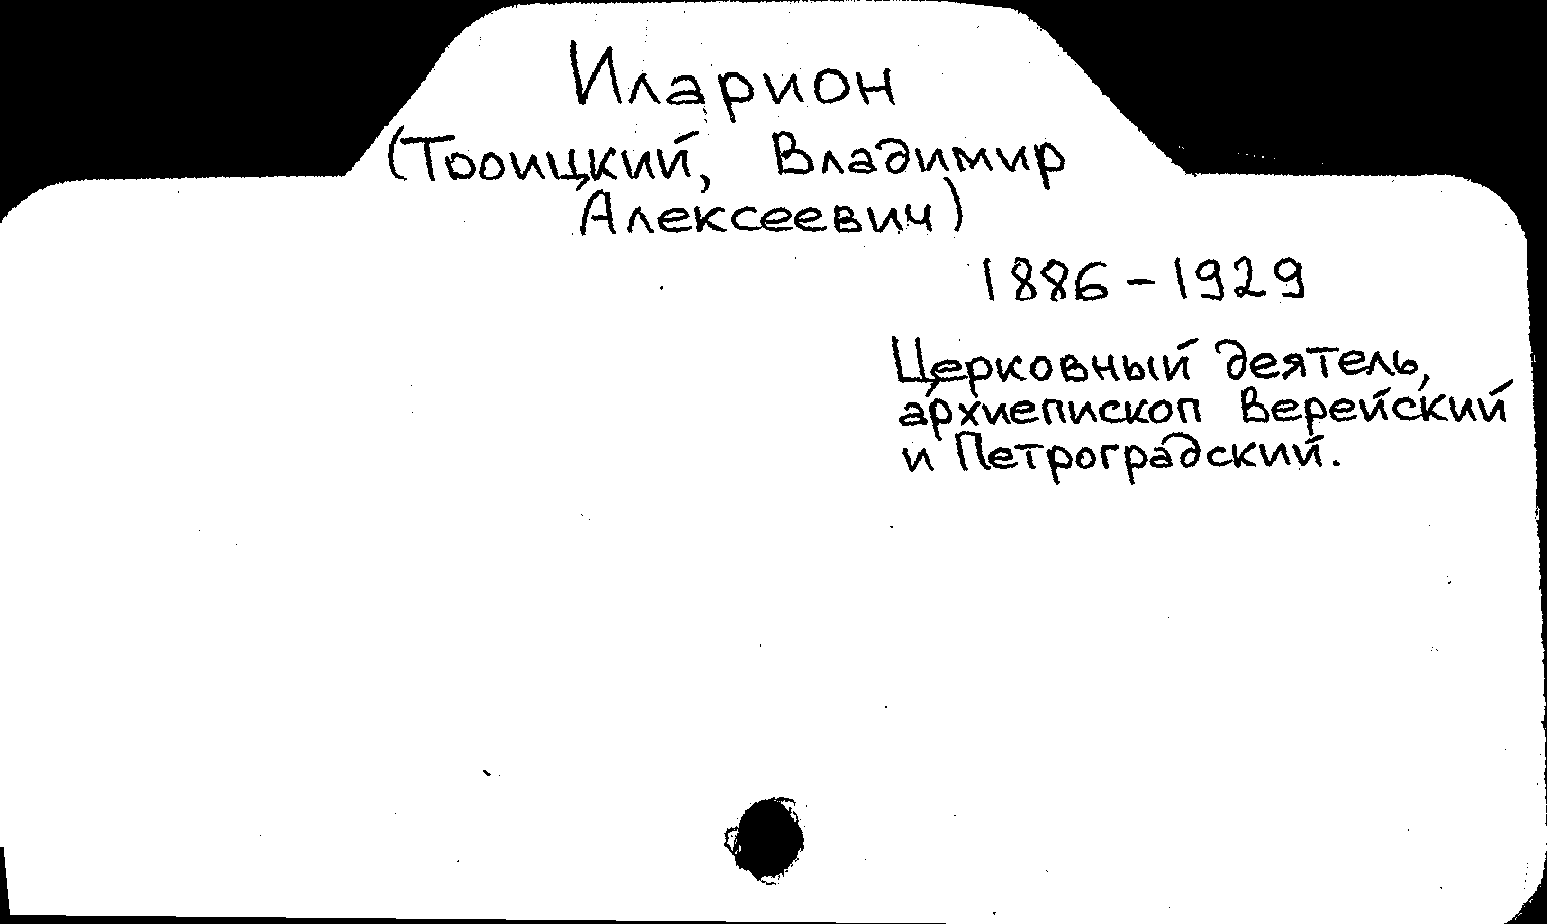 Иларион
(Троицкий, Владимир
Алексеевич)
1886 – 1929
Церковный деятель,
архиепископ Верейский
и Петроградский.